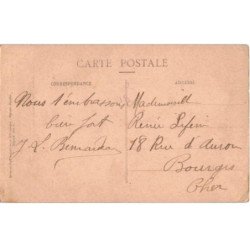 CARTE POSTALE
CORRESPONDANCE
ADRESSE
Nous t'embrassons
bien fort
J L
Mademoiselle
Renée
18 Rue d'Auron
Bourges
Cher